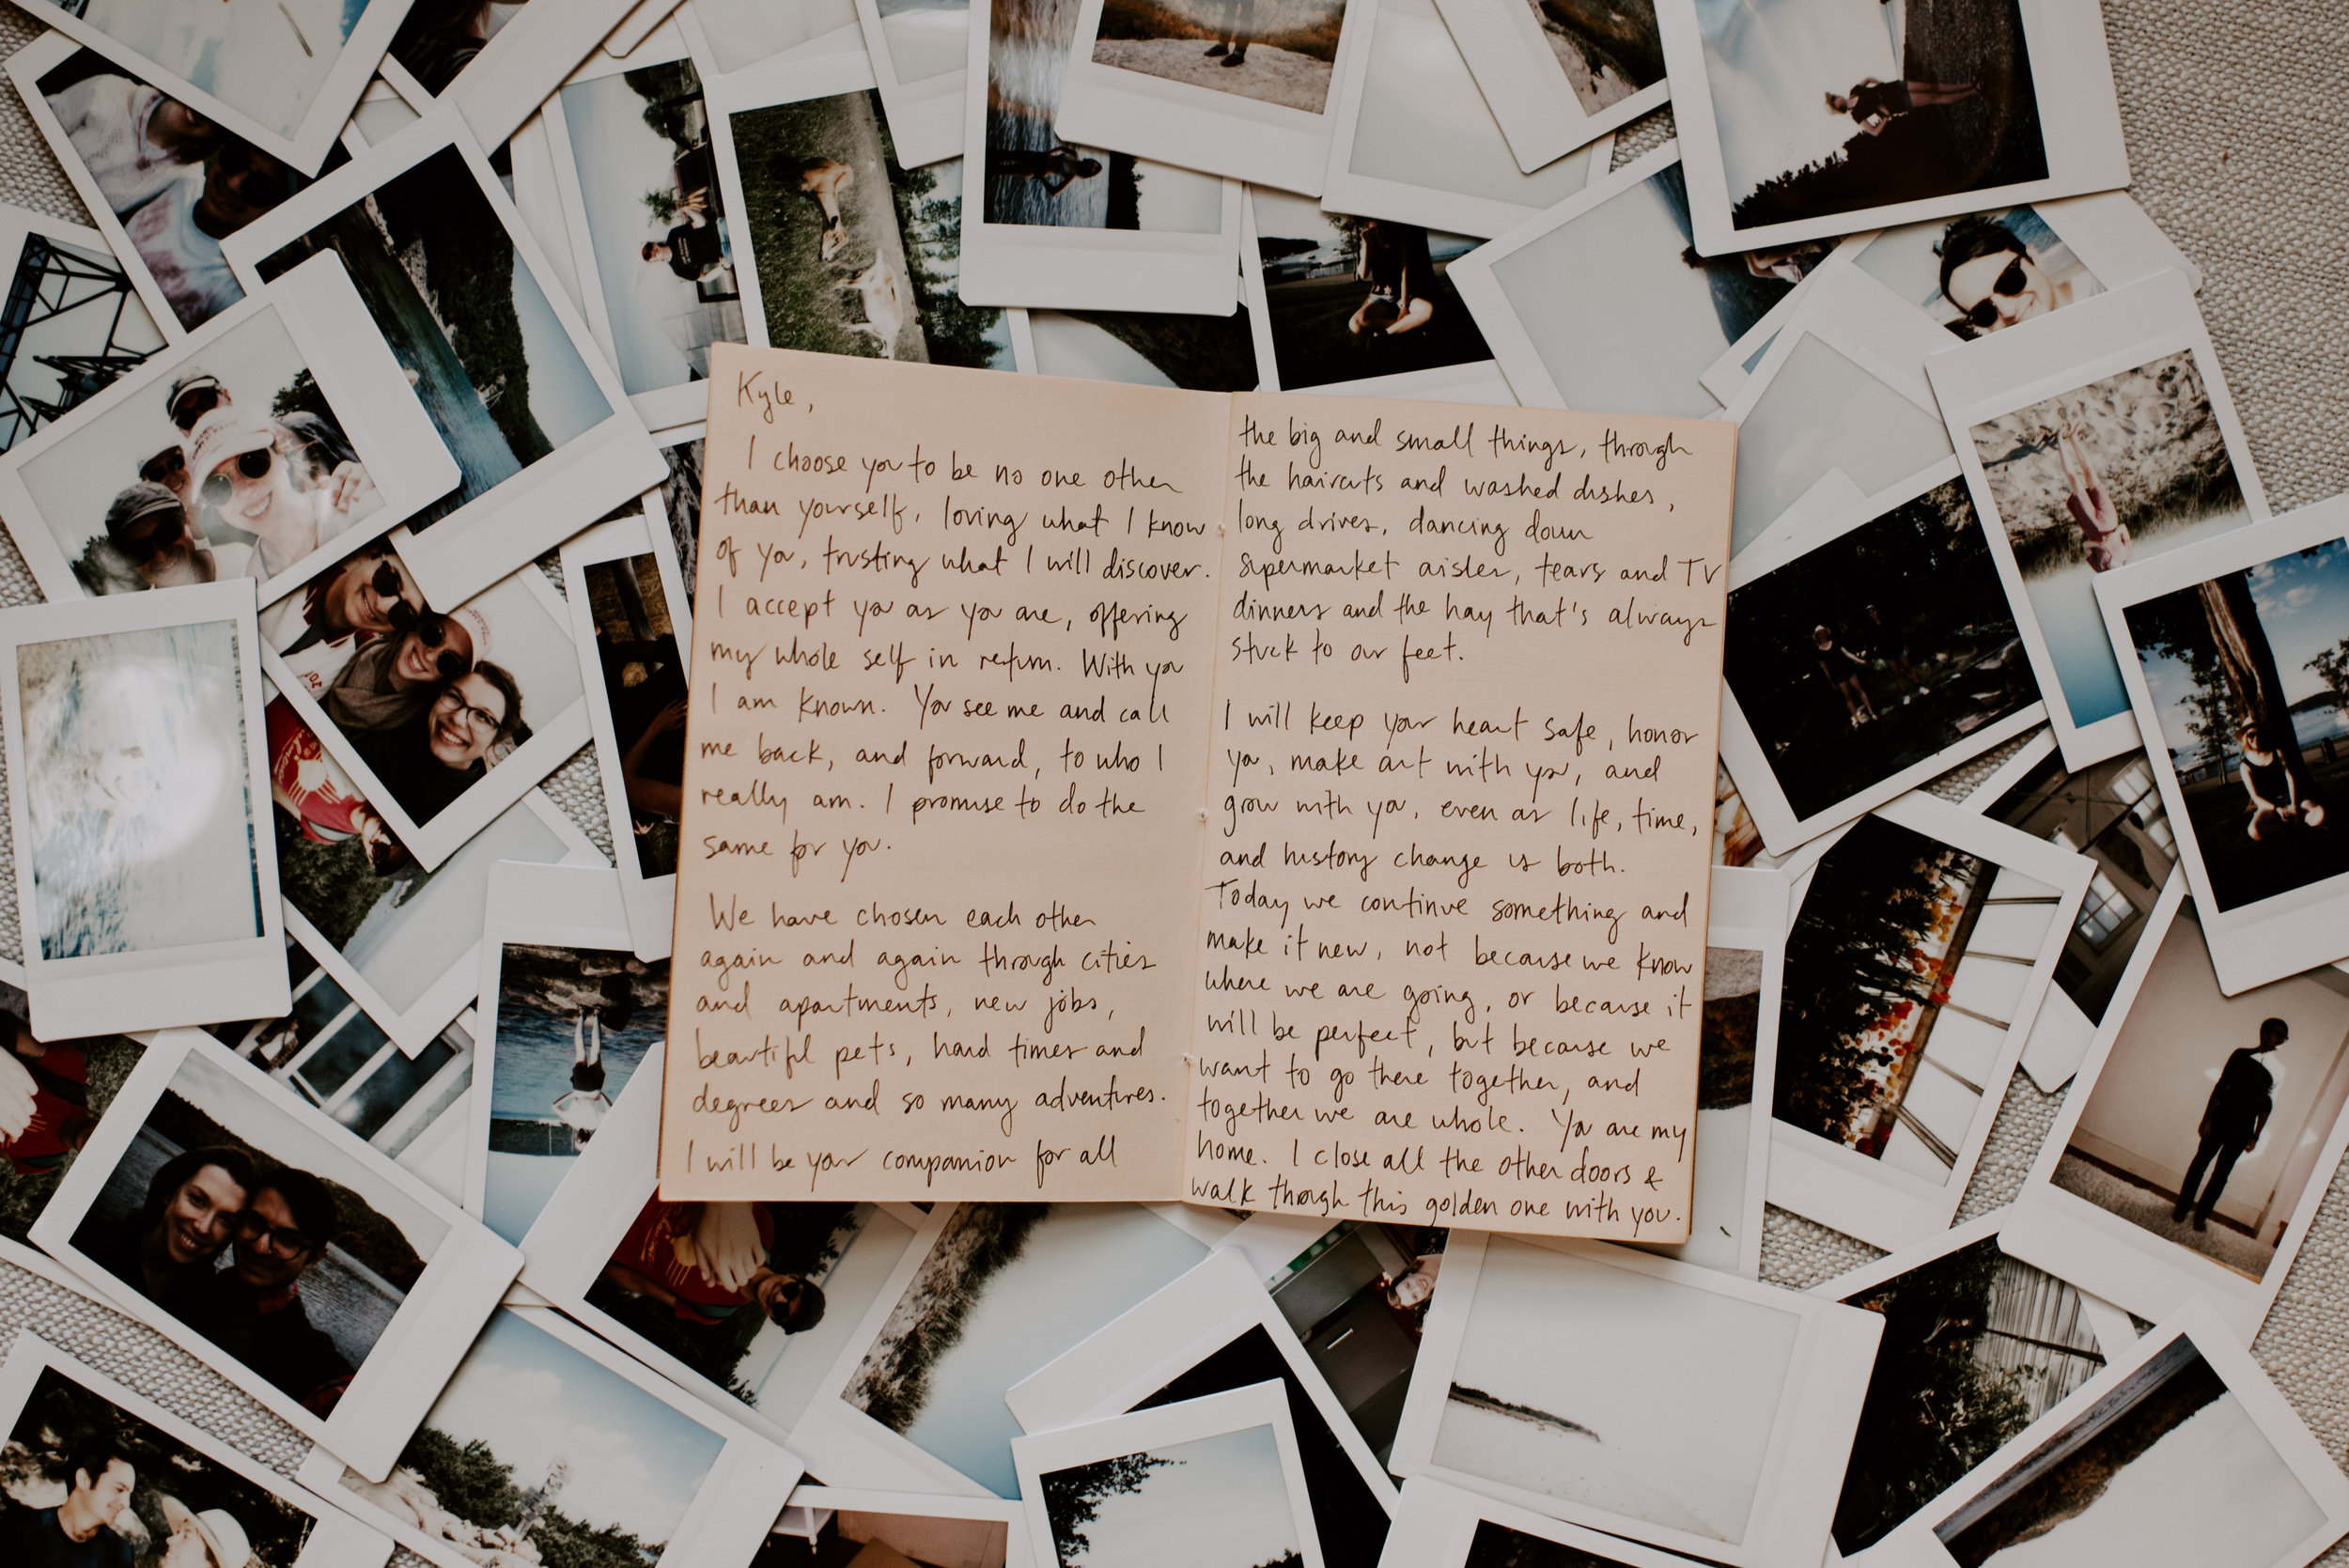 Kyle,
I choose you to be no one other
than yourself, loving what I know
of you, trusting what I will discover.
I accept you as you are, offering
my whole self in return. With you
I am known. You see me and call
me back, and forward, to who I
really am. I promise to do the
same for you.
We have chosen each other
again and again through cities
and apartments, new jobs,
beautiful pets, hard times and
degrees and so many adventures.
I will be your companion for all
the big and small things, through
the haircuts and washed dishes,
long drives, dancing down
supermarket aisles, tears and TV
dinners and the hay that's always
stuck to our feet.
I will keep your heart safe, honor
you, make art with you, and
grow with you, even as life, time,
and history change us both.
Today we continue something and
make it new, not because we know
where we are going, or because it
will be perfect, but because we
want to go there together, and
together we are whole. You are my
home. I close all the other doors &
walk through this golden one with you.